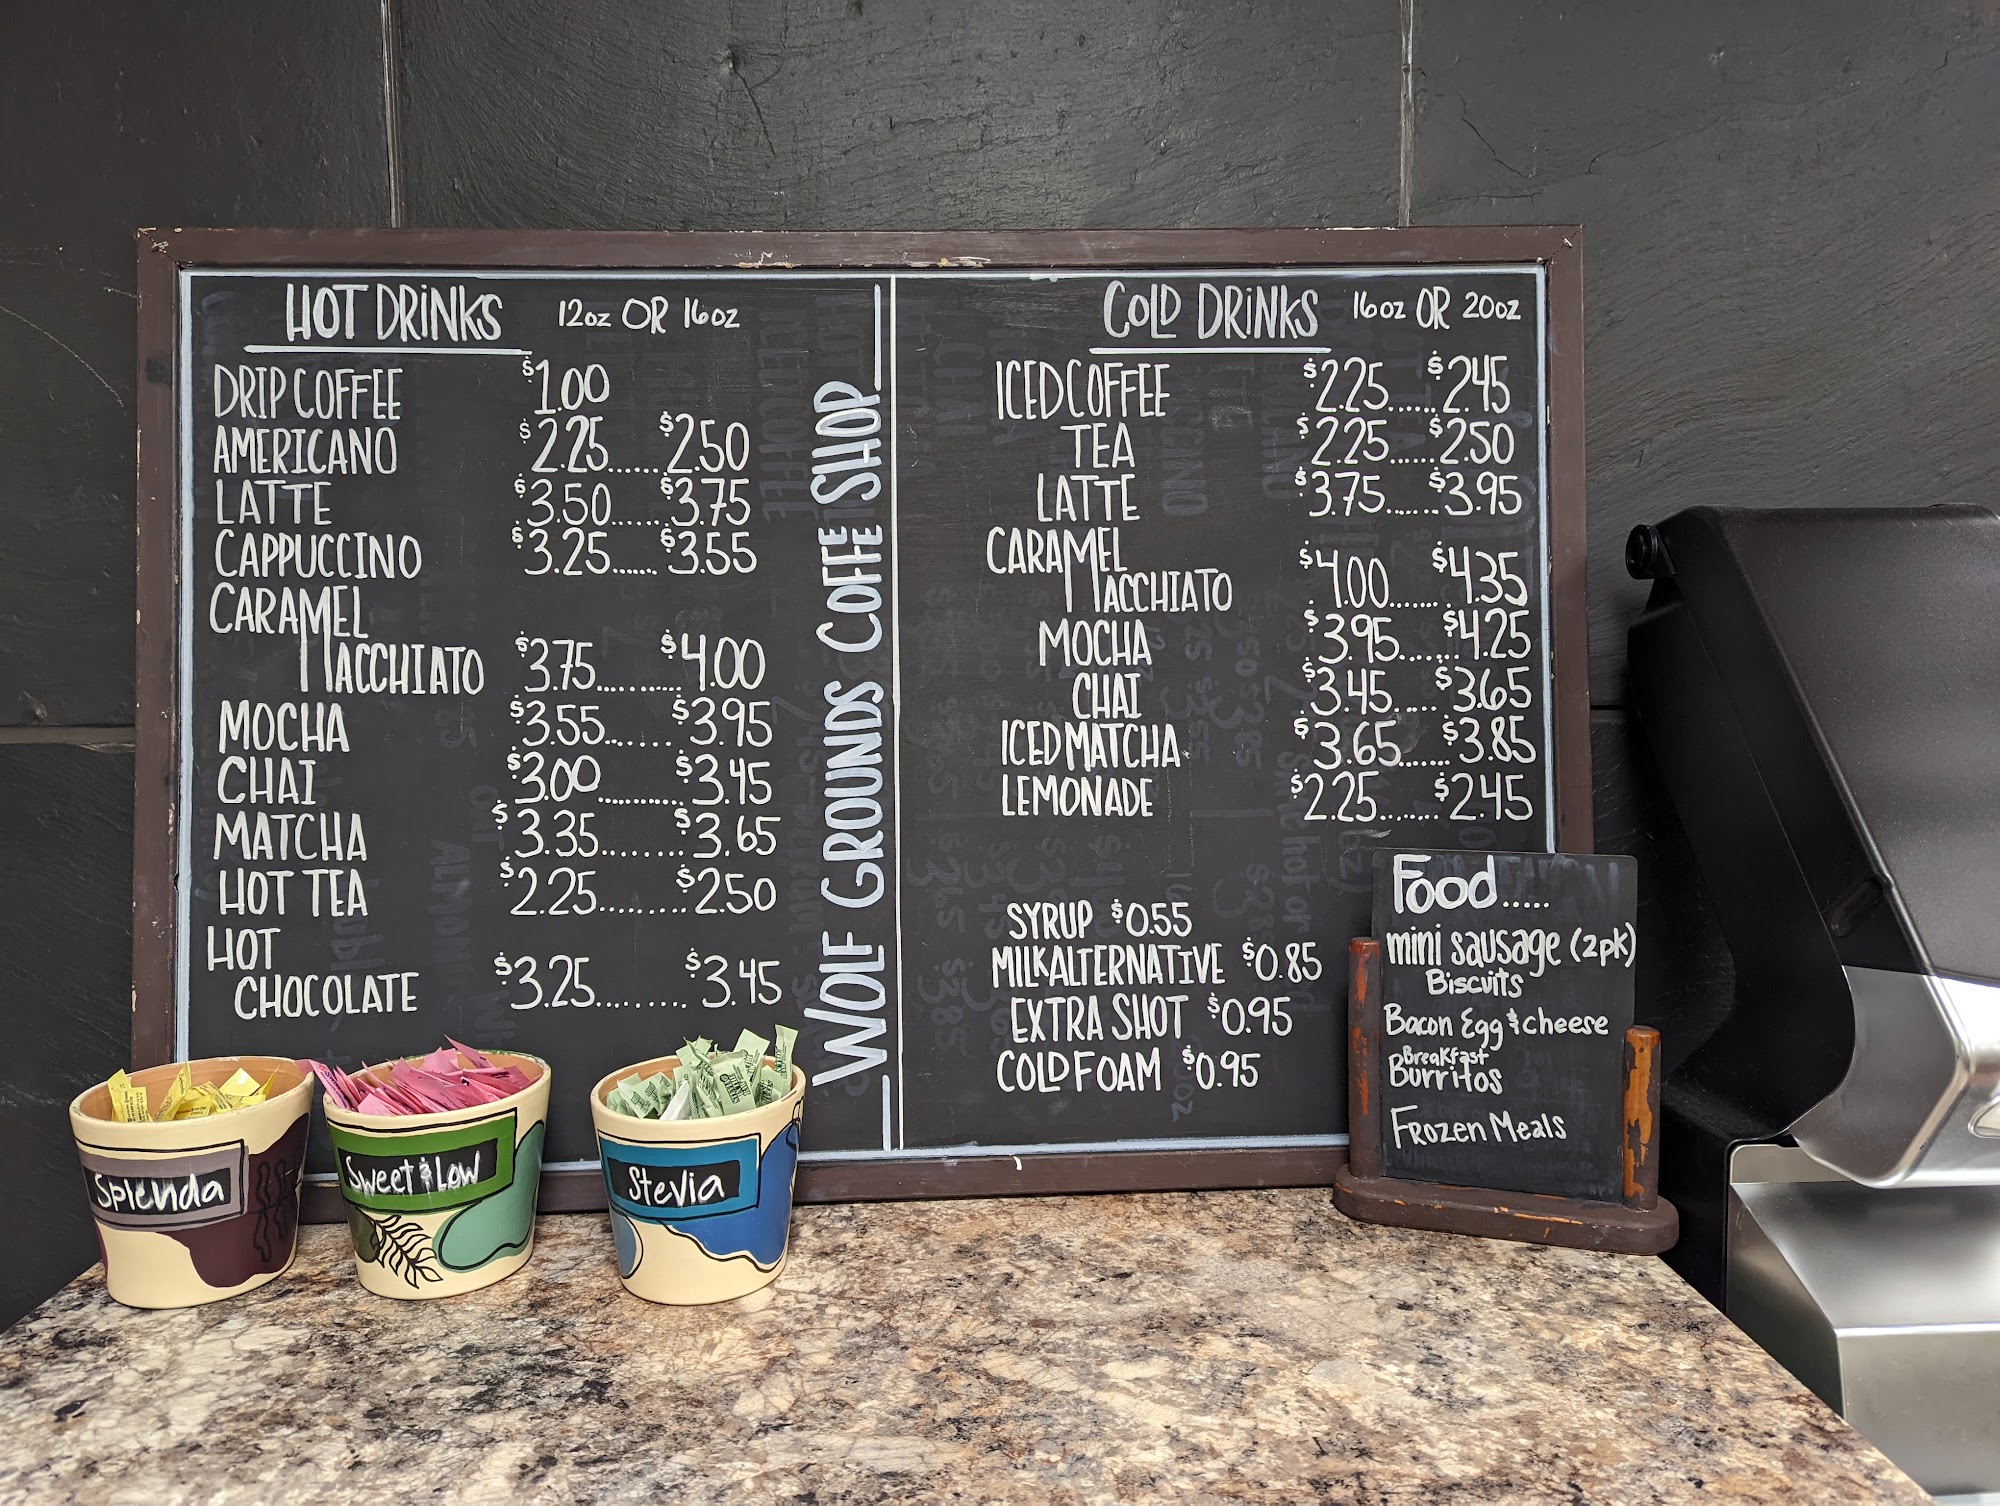 HOT DRINKS 12oz OR 16oz
DRIP COFFEE $1.00
AMERICANO $2.25......$2.50
LATTE $3.50......$3.75
CAPPUCCINO $3.25......$3.55
CARAMEL
MACCHIATO $3.75..........$4.00
MOCHA $3.55........$3.95
CHAI $3.00...........$3.45
MATCHA $3.35.........$3.65
HOT TEA $2.25.........$2.50
HOT
CHOCOLATE $3.25.........$3.45
WOLF GROUNDS COFFEE SHOP
COLD DRINKS 16oz OR 20oz
ICED COFFEE $2.25......$2.45
TEA $2.25......$2.50
LATTE $3.75......$3.95
CARAMEL
MACCHIATO $4.00.......$4.35
MOCHA $3.95......$4.25
CHAI $3.45......$3.65
ICED MATCHA $3.65.......$3.85
LEMONADE $2.25........$2.45
SYRUP $0.55
MILK ALTERNATIVE $0.85
EXTRA SHOT $0.95
COLD FOAM $0.95
Food.....
mini sausage (2pk)
Biscuits
Bacon Egg & cheese
Breakfast
Burritos
Frozen Meals
Splenda
Sweet & Low
Stevia